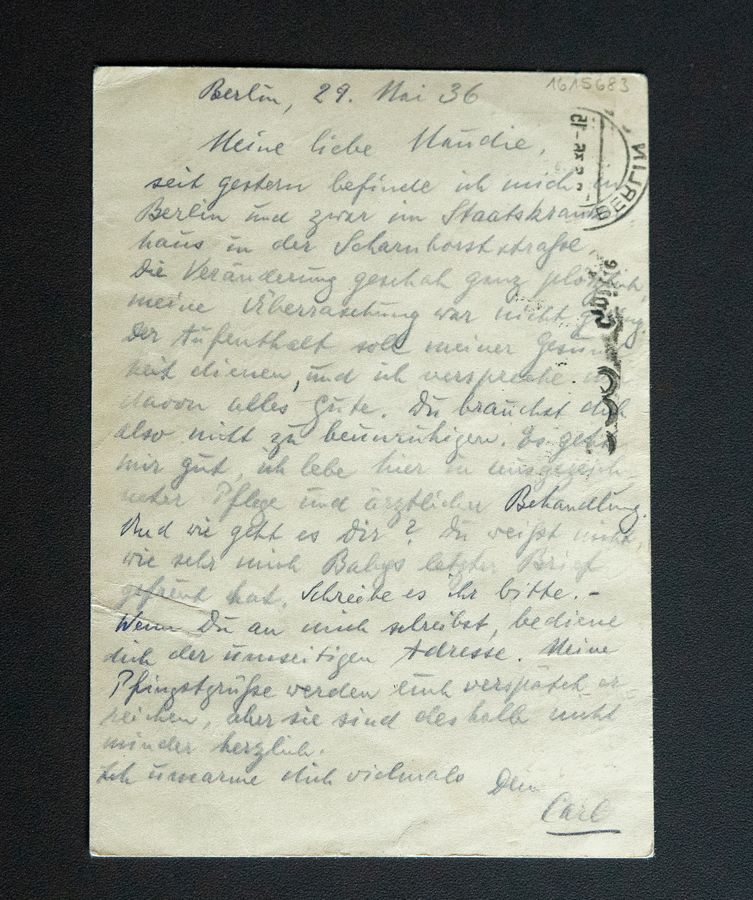 1615683
Berlin, 29. Mai 36
Meine liebe Maudie,
seit gestern befinde ich mich in
Berlin und zwar im Staatskranken
haus in der Scharnhorststraße.
Die Veränderung geschah ganz plötzlich,
meine Überraschung war nicht gering.
Der Aufenthalt soll meiner Gesund
heit dienen, und ich verspreche mir
davon alles Gute. Du brauchst dich
also nicht zu beunruhigen. Es geht
mir gut, ich lebe hier in ausgezeich
neter Pflege und ärztlicher Behandlung.
Und wie geht es Dir? Du weißt nicht,
wie sehr mich Babys letzter Brief
gefreut hat. Schreibe es ihr bitte. –
Wenn Du an mich schreibst, bediene
dich der umseitigen Adresse. Meine
Pfingstgrüße werden euch verspätet er-
reichen, aber sie sind deshalb nicht
minder herzlich.
Ich umarme dich vielmals Dein
Carl
BERLIN